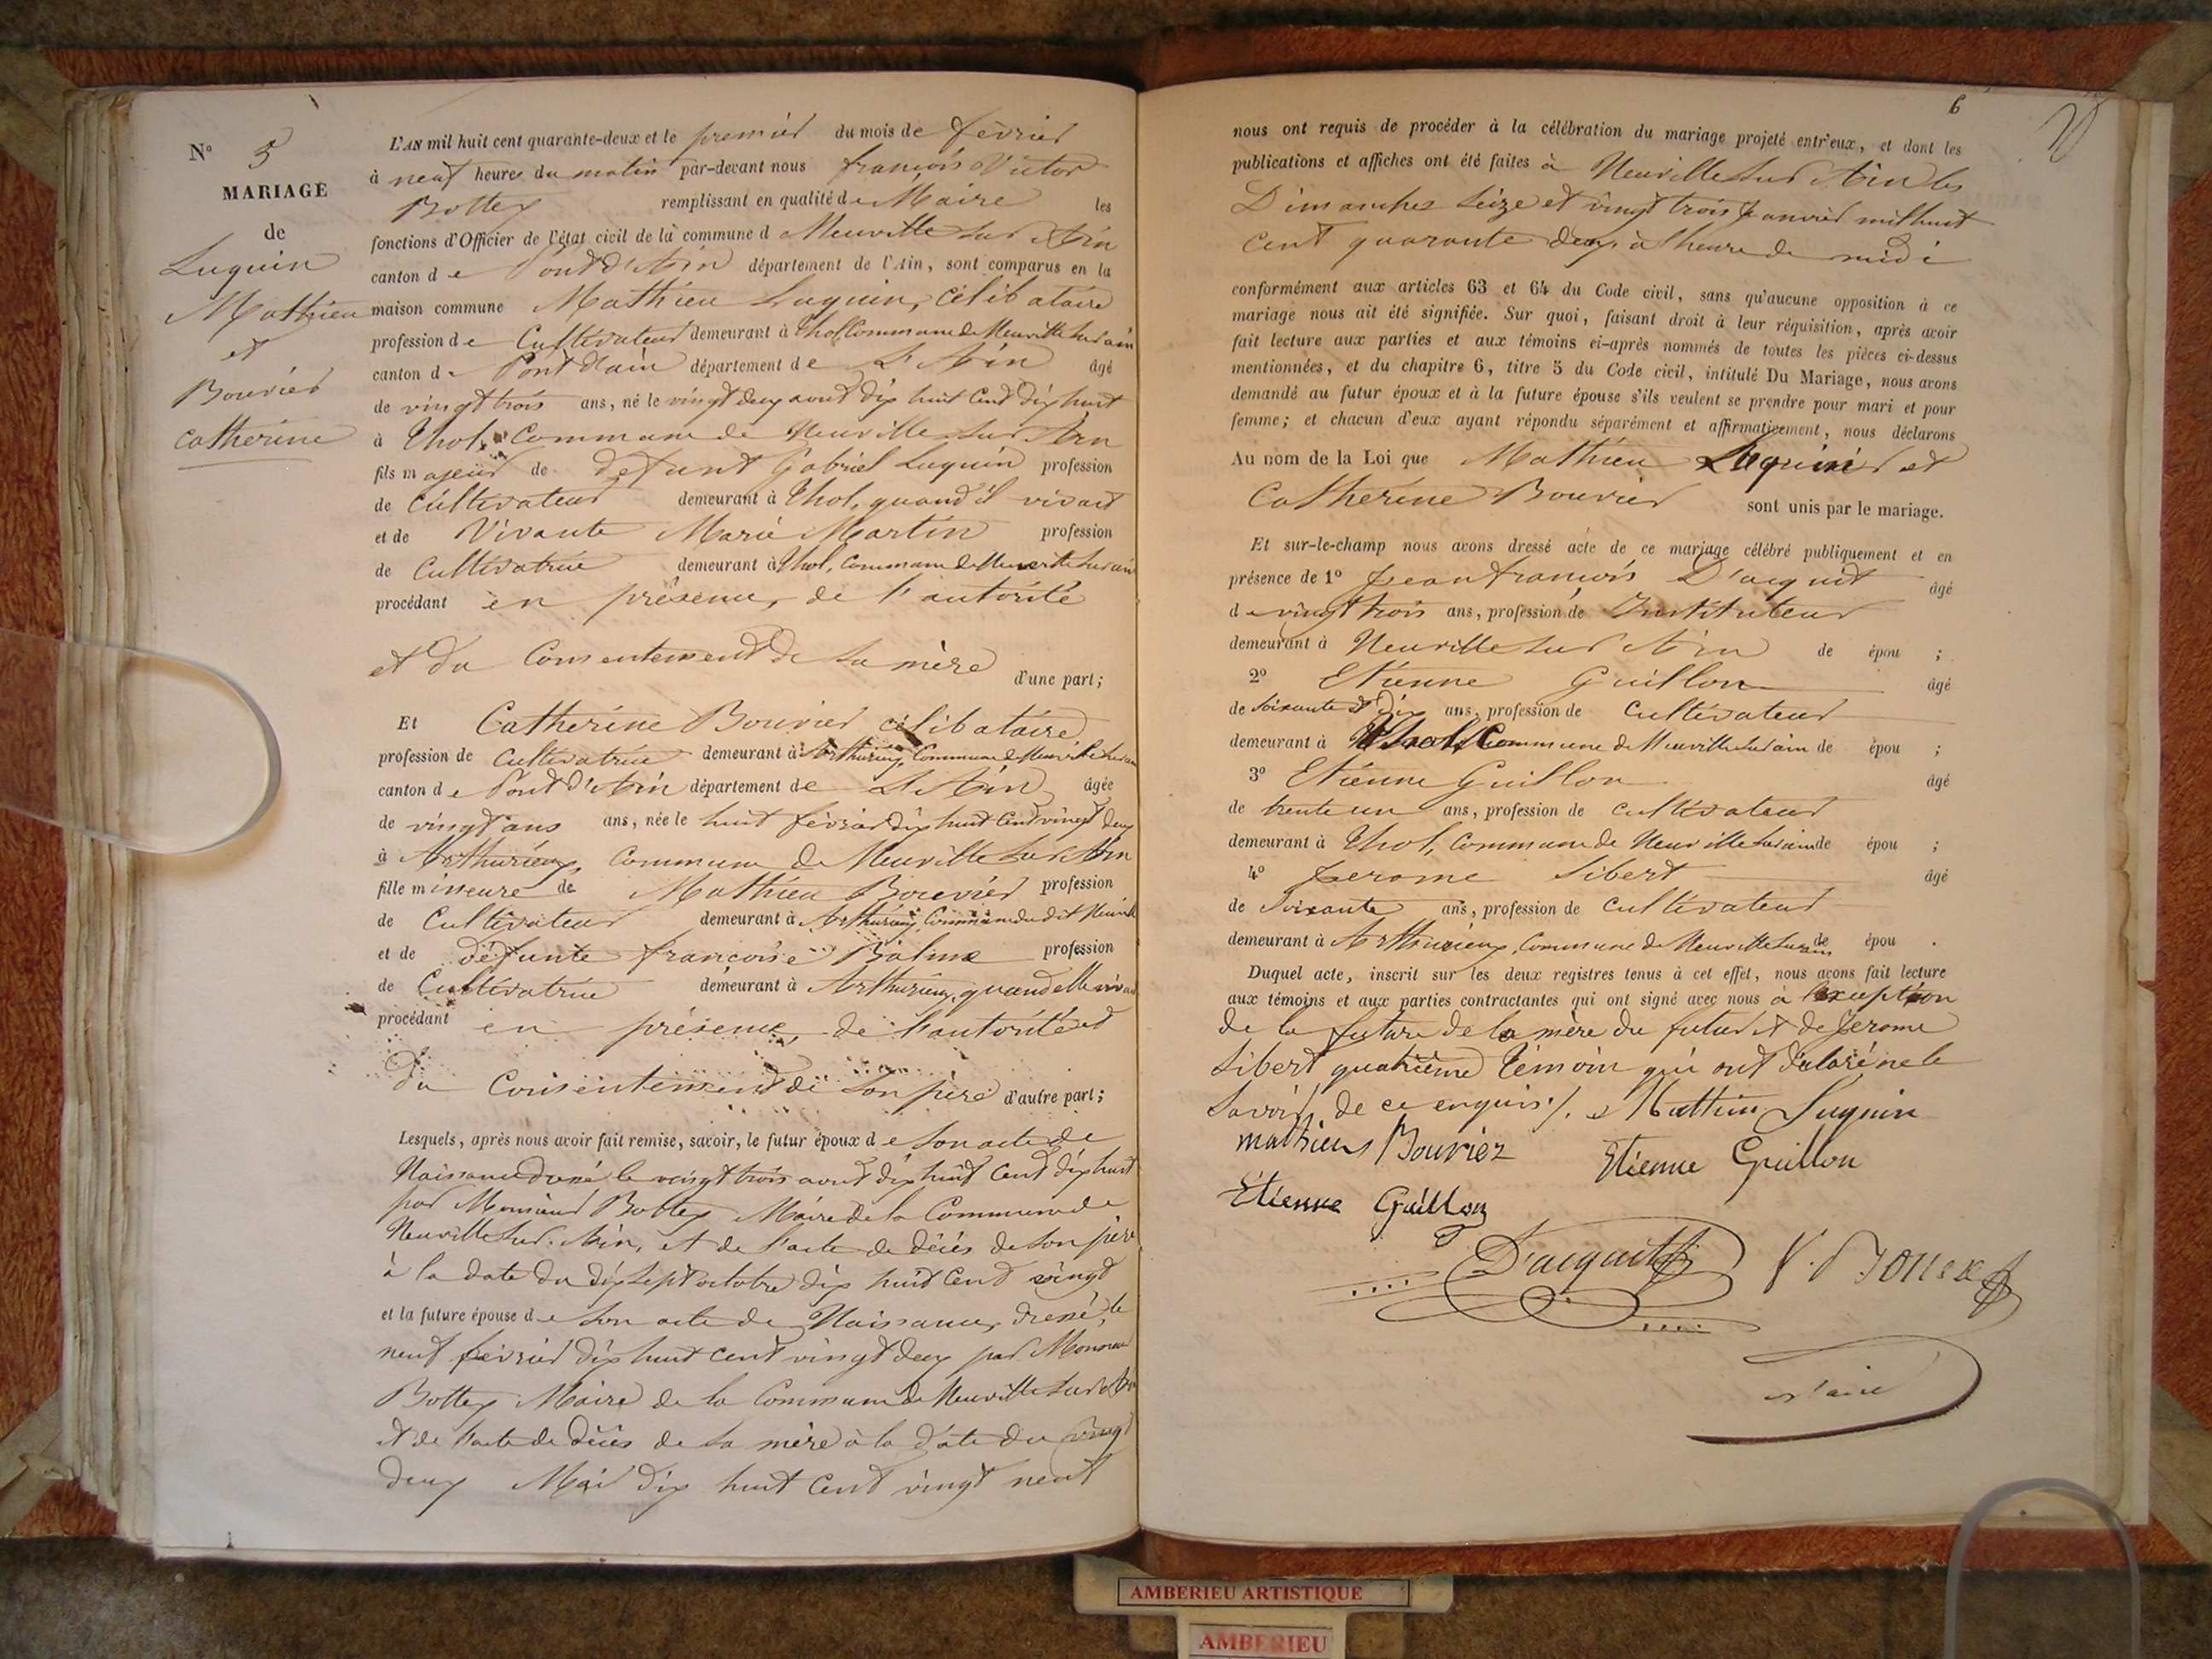 N° 5
MARIAGE
de
Luquin
Mathieu
et
Bouvier
catherine
L'AN mil huit cent quarante-deux et le premier du mois de février
à neuf heures du matin par-devant nous françois Victor
Bottex remplissant en qualité de Maire les
fonctions d'Officier de l'état civil de la commune d Neuville sur Ain
canton de Pont d'Ain département de l'Ain, sont comparus en la
maison commune Mathieu Luquin, célibataire
profession de Cultivateur demeurant à Thol, Commune de Neuville sur ain
canton de Pont d'ain département de L'Ain âgé
de vingt trois ans, né le vingt deux aout dix huit Cent dix huit
à Thol, Commune de Neuville sur Ain
fils majeur de défunt Gabriel Luquin profession
de Cultivateur demeurant à Thol, quand il vivait
et de Vivante Marie Martin profession
de Cultivatrice demeurant à Thol, Commune de Neuville sur ain
procédant en présence, de l'autorité
et du Consentement de sa mère d'une part;
Et Catherine Bouvier célibataire
profession de cultivatrice demeurant à Arthurieux, Commune de Neuville sur ain
canton de Pont d'Ain département de L'Ain âgée
de vingt ans ans, née le huit février dix huit Cent vingt deux
à Arthurieux, Commune de Neuville sur Ain
fille mineure de Mathieu Bouvier profession
de Cultivateur demeurant à Arthurieux, Commune du dit Neuville
et de défunte françoise Balme profession
de Cultivatrice demeurant à Arthurieux, quand elle vivait
procédant en présence, de l'autorité et
du Consentement de son père d'autre part;
Lesquels, après nous avoir fait remise, savoir, le futur époux de son acte de
Naissance dressé le vingt trois aout dix huit Cent dix huit
par Monsieur Bottex Maire de la Commune de
Neuville sur Ain, et de l'acte de décès de son père
à la date du dix sept octobre dix huit Cent vingt
et la future épouse de son acte de Naissance, dressé, le
neuf février dix huit cent vingt deux par Monsieur
Bottex Maire de la Commune de Neuville sur Ain
et de l'acte de décès de sa mère à la date du vingt
deux Mai dix huit Cent vingt neuf
6
nous ont requis de procéder à la célébration du mariage projeté entr'eux, et dont les
publications et affiches ont été faites à Neuville sur Ain les
Dimanches seize et vingt trois Janvier mil huit
cent quarante deux à l'heure de midi
conformément aux articles 63 et 64 du Code civil, sans qu'aucune opposition à ce
mariage nous ait été signifiée. Sur quoi, faisant droit à leur réquisition, après avoir
fait lecture aux parties et aux témoins ci-après nommés de toutes les pièces ci-dessus
mentionnées, et du chapitre 6, titre 5 du Code civil, intitulé Du Mariage, nous avons
demandé au futur époux et à la future épouse s'ils veulent se prendre pour mari et pour
femme; et chacun d'eux ayant répondu séparément et affirmativement, nous déclarons
Au nom de la Loi que Mathieu Luquin et
Catherine Bouvier sont unis par le mariage.
Et sur-le-champ nous avons dressé acte de ce mariage célébré publiquement et en
présence de 1° Jean françois D'acquit âgé
de vingt trois ans, profession de Instituteur
demeurant à Neuville sur Ain de épou ;
2° Etienne Guillon âgé
de soixante et dix ans, profession de Cultivateur
demeurant à Thol, Commune de Neuville sur ain de épou ;
3° Etienne Guillon âgé
de trente un ans, profession de cultivateur
demeurant à Thol, Commune de Neuville sur ain de épou ;
4° Jerome Sibert âgé
de Soixante ans, profession de Cultivateur
demeurant à Arthurieux, Commune de Neuville sur ain de épou .
Duquel acte, inscrit sur les deux registres tenus à cet effet, nous avons fait lecture
aux témoins et aux parties contractantes qui ont signé avec nous à l'exception
de la future de la mère du futur et de Jerome
Sibert quatrième témoin qui ont déclaré ne le
savoir, de ce enquis /. Mathieu Luquin
mathieu Bouvier Etienne Guillon
Etienne Guillon
D'acquit V. Bottex
Maire
AMBERIEU ARTISTIQUE
AMBERIEU